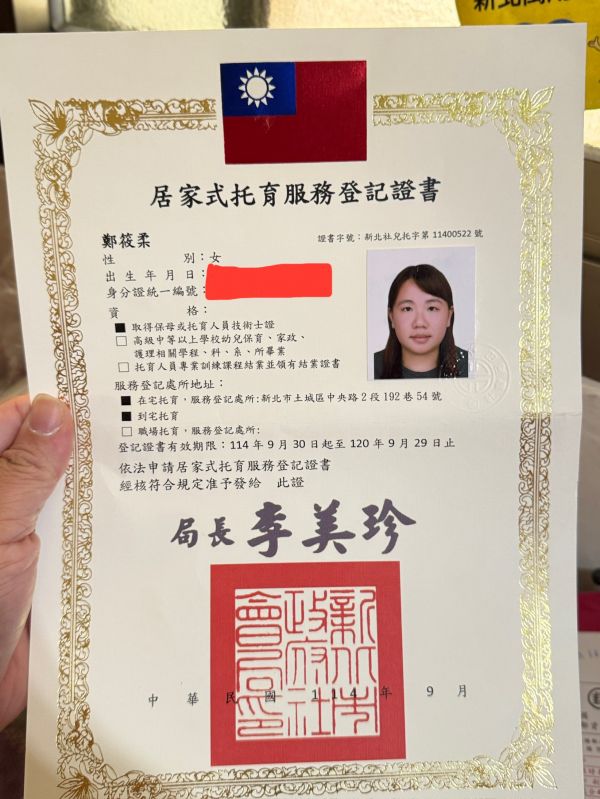 居家式托育服務登記證書
鄭筱柔
證書字號：新北社兒托字第 11400522 號
性別：女
出生年月日：
身分證統一編號：
資格：
■ 取得保母或托育人員技術士證
□ 高級中等以上學校幼兒保育、家政、
護理相關學程、科、系、所畢業
□ 托育人員專業訓練課程結業並領有結業證書
服務登記處所地址：
■ 在宅托育，服務登記處所:新北市土城區中央路2段192巷54號
■ 到宅托育
□ 職場托育，服務登記處所:
登記證書有效期限：114年9月30日起至120年9月29日止
依法申請居家式托育服務登記證書
經核符合規定准予發給 此證
局長 李美珍
新北市
政府社
會局印
中華民國 114 年 9 月